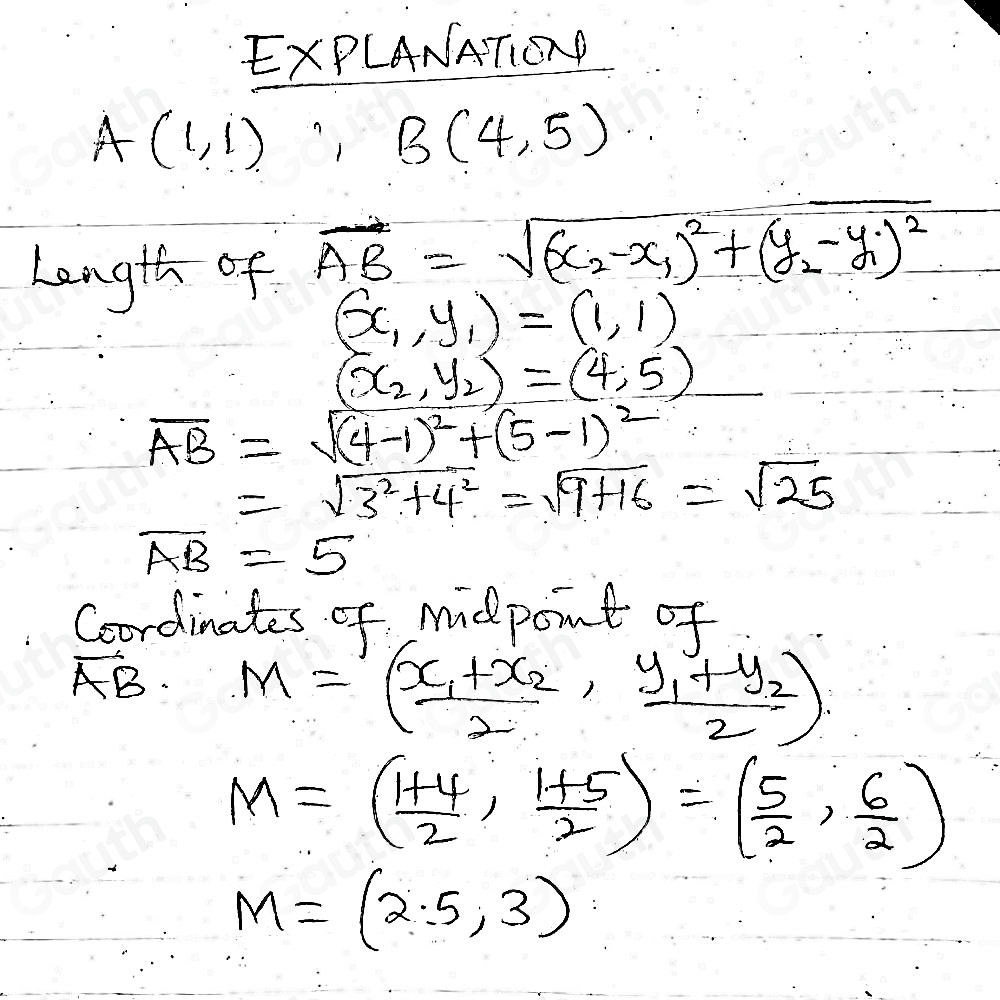 EXPLANATION
A(1,1) ; B(4,5)
Length of \overrightarrow{AB} = √((x₂-x₁)²+(y₂-y₁)²)
(x₁,y₁) = (1,1)
(x₂,y₂) = (4,5)
\overline{AB} = √((4-1)²+(5-1)²)
= √(3²+4²) = √(9+16) = √25
\overline{AB} = 5
Coordinates of midpoint of
\overline{AB}. M = ((x₁+x₂)/2, (y₁+y₂)/2).
M = ((1+4)/2, (1+5)/2) = (5/2, 6/2)
M = (2.5, 3)